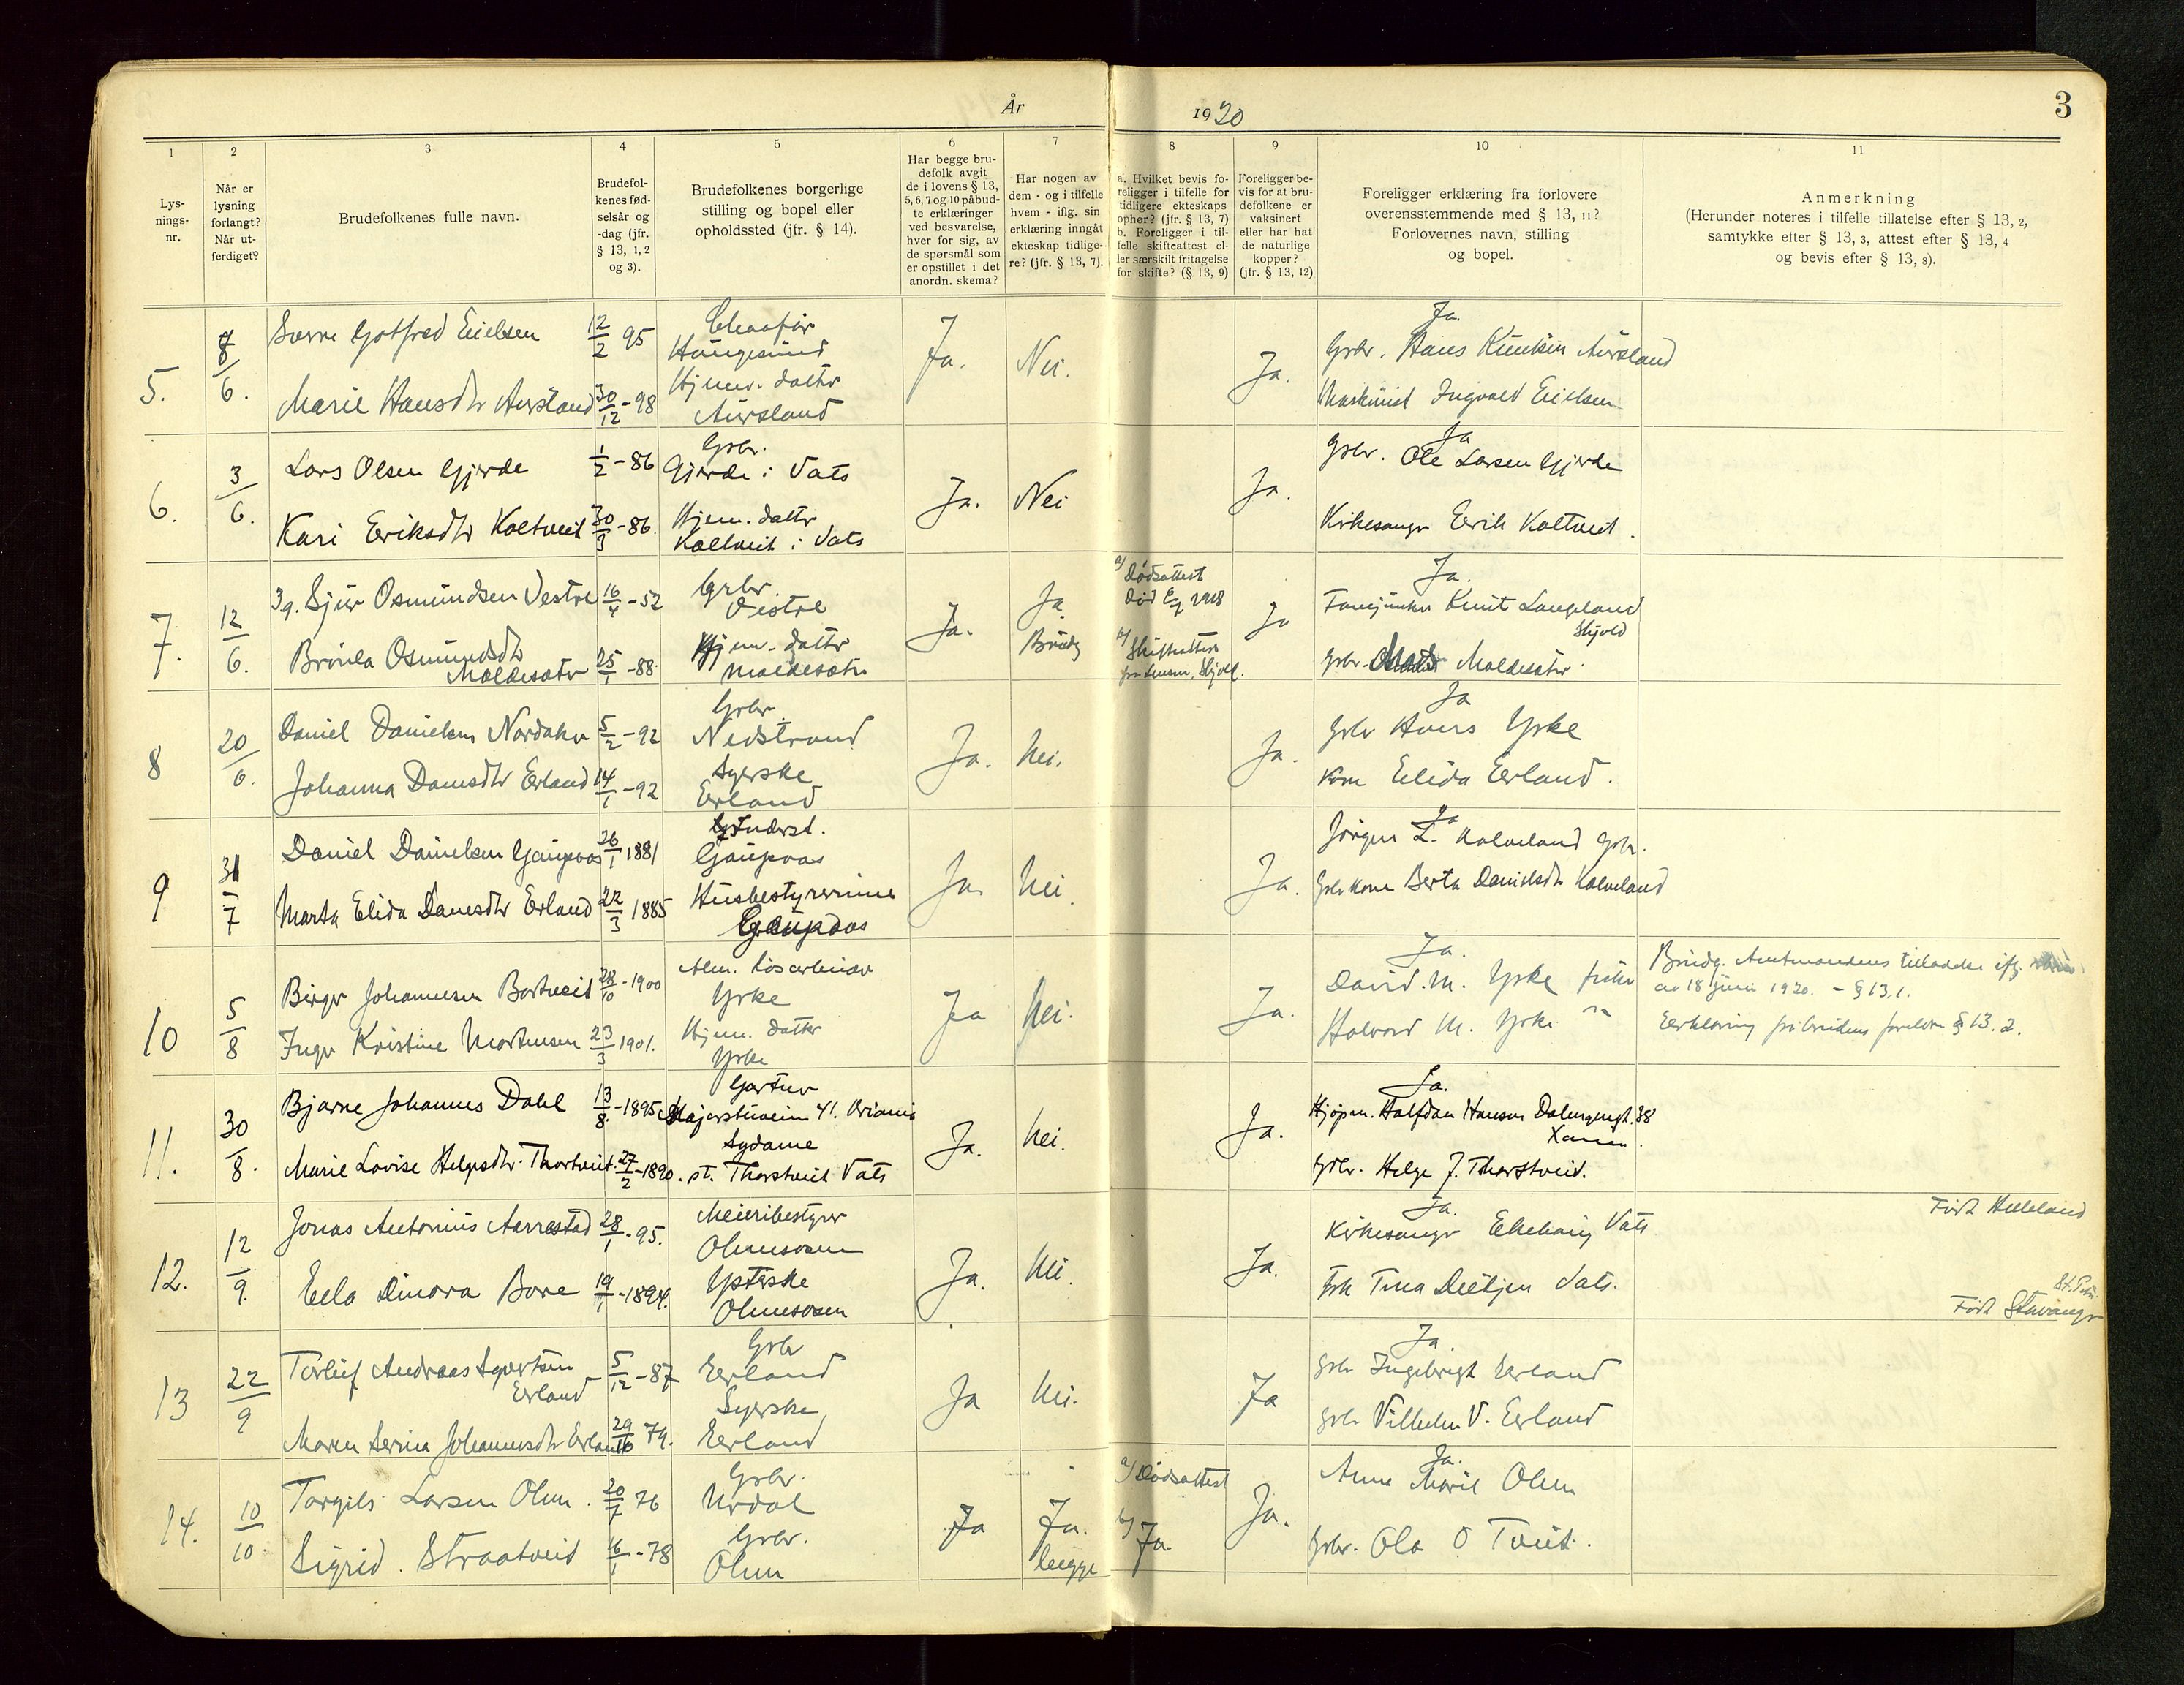 År
1920
3
1
2
3
4
5
6
7
8
9
10
11
Lys-
nings-
nr.
Når er
lysning
forlangt?
Når ut-
ferdiget?
Brudefolkenes fulle navn.
Brudefol-
kenes fød-
selsår og
-dag (jfr.
§ 13, 1, 2
og 3).
Brudefolkenes borgerlige
stilling og bopel eller
opholdssted (jfr. § 14).
Har begge bru-
defolk avgit
de i lovens § 13,
5, 6, 7 og 10 påbud-
te erklæringer
ved besvarelse,
hver for sig, av
de spørsmål som
er opstillet i det
anordn. skema?
Har nogen av
dem - og i tilfelle
hvem - iflg. sin
erklæring inngåt
ekteskap tidlige-
re? (jfr. § 13, 7).
a. Hvilket bevis fo-
religger i tilfelle for
tidligere ekteskaps
ophør? (jfr. § 13, 7)
b. Foreligger i til-
felle skifteattest el-
ler særskilt fritagelse
for skifte? (§ 13, 9)
Foreligger be-
vis for at bru-
defolkene er
vaksinert
eller har hat
de naturlige
kopper?
(jfr. § 13, 12)
Foreligger erklæring fra forlovere
overensstemmende med § 13, 11?
Forlovernes navn, stilling
og bopel.
Anmerkning
(Herunder noteres i tilfelle tillatelse efter § 13, 2,
samtykke efter § 13, 3, attest efter § 13, 4
og bevis efter § 13, 8).
5.
8/6.
Sverre Gotfred Eielsen
12/2 95
Haugesund
Marie Hansdtr Aursland
30/12-98
Hjemv. datter
Aursland
Ja.
Nei.
Ja.
Ja.
Grbr. Hans Knutsen Aursland
Maskinist Ingvald Eielsen
6.
3/6.
Lars Olsen Gjerde
1/2-86
Grbr.
Gjerde i Vats
Kari Eriksdtr Koltveit
30/3-86
Hjem. datter
Koltveit i Vats
Ja.
Nei
Ja.
Ja
Grbr. Ole Larsen Gjerde
Kirkesanger Eerik Koltveit.
7.
12/6.
3g. Sjur Osmundsen Vestre
16/4-52
Grbr.
Vestre
Brønla Osmundsdtr
Moldesæter
25/1-88
Hjem. datter
Moldesæter
Ja.
Ja
Brudg
a) Dødsattest
b) Skifteattest
Ja
Ja.
Knut Langeland
Skjold
Grbr. Moldesæter
8
20/6.
Daniel Danielsen
5/2-92
Grbr.
Nedstrand
Johanna Danesdtr Erland
14/1-92
Syerske
Erland
Ja.
Nei.
Ja.
Ja
Grbr Hans Yrke
Kone Elida Eerland.
9
31/7
Daniel Danielsen Gaupaas
26/1 1881
Gaupaas
Marta Elida Danesdtr Erland
22/3 1885
Husbestyrerinne
Gaupaas
Ja
Nei.
Ja.
Ja
Jørgen L. Kalveland Grbr.
Grbr kone Berta Danielsdtr Kalveland
10
5/8
Birger Johannesen Bortveit
28/10-1900
Yrke
Inger Kristine Mortensen
23/3 1901.
Hjem. datter
Yrke
Ja
Nei.
Ja.
Ja.
David. M. Yrke
Halvard M. Yrke
Brudg. Amtmandens tilladelse ifg.
av 18 juni 1920. - § 13, 1.
Eerklæring fra brudens foreldre § 13. 2.
11.
30/8.
Bjarne Johannes Dahl
13/8.-1895
Gartner
Majorstuveien 41. Kristiania
Marie Lovise Helgesdtr. Thortveit.
27/2-1890.
Sydame
st. Thorstveit Vats
Ja.
Nei.
Ja.
Ja.
Kjøpm. Halfdan Hansen Dalsbergst. 38
Xania.
Grbr. Helge J. Thorstveit.
12.
12/9.
Jonas Antonius Aarrestad
28/1-95.
Meieribestyrer
Ølensosen
Eela Dinora Bore
19/1-1894.
Ysterske
Ølensosen
Ja.
Nei.
Ja.
Ja.
Kirkesanger Ekehaug Vats
Frk Tina Dietjen Vats.
Født Helleland
St. Petri.
Født Stavanger
13
22/9
Torleif Andreas Syvertsen
Erland
5/12-87
Grbr
Eerland
Maren Serina Johannesdtr Erland
29/10 79.
Syerske
Eerland
Ja
Nei.
Ja
Ja.
Grbr Ingebrigt Eerland
Grbr Vilhelm V. Eerland
14.
10/10.
Torgils Larsen Ølen.
20/7 76
Grbr.
Urdal
Sigrid. Straatveit
16/1-78
Grbr.
Ølen
Ja
Ja.
begge
a) Dødsattest
b) Ja.
Ja.
Ja.
Anne Marie Ølen
Grbr. Ola O Tveit.